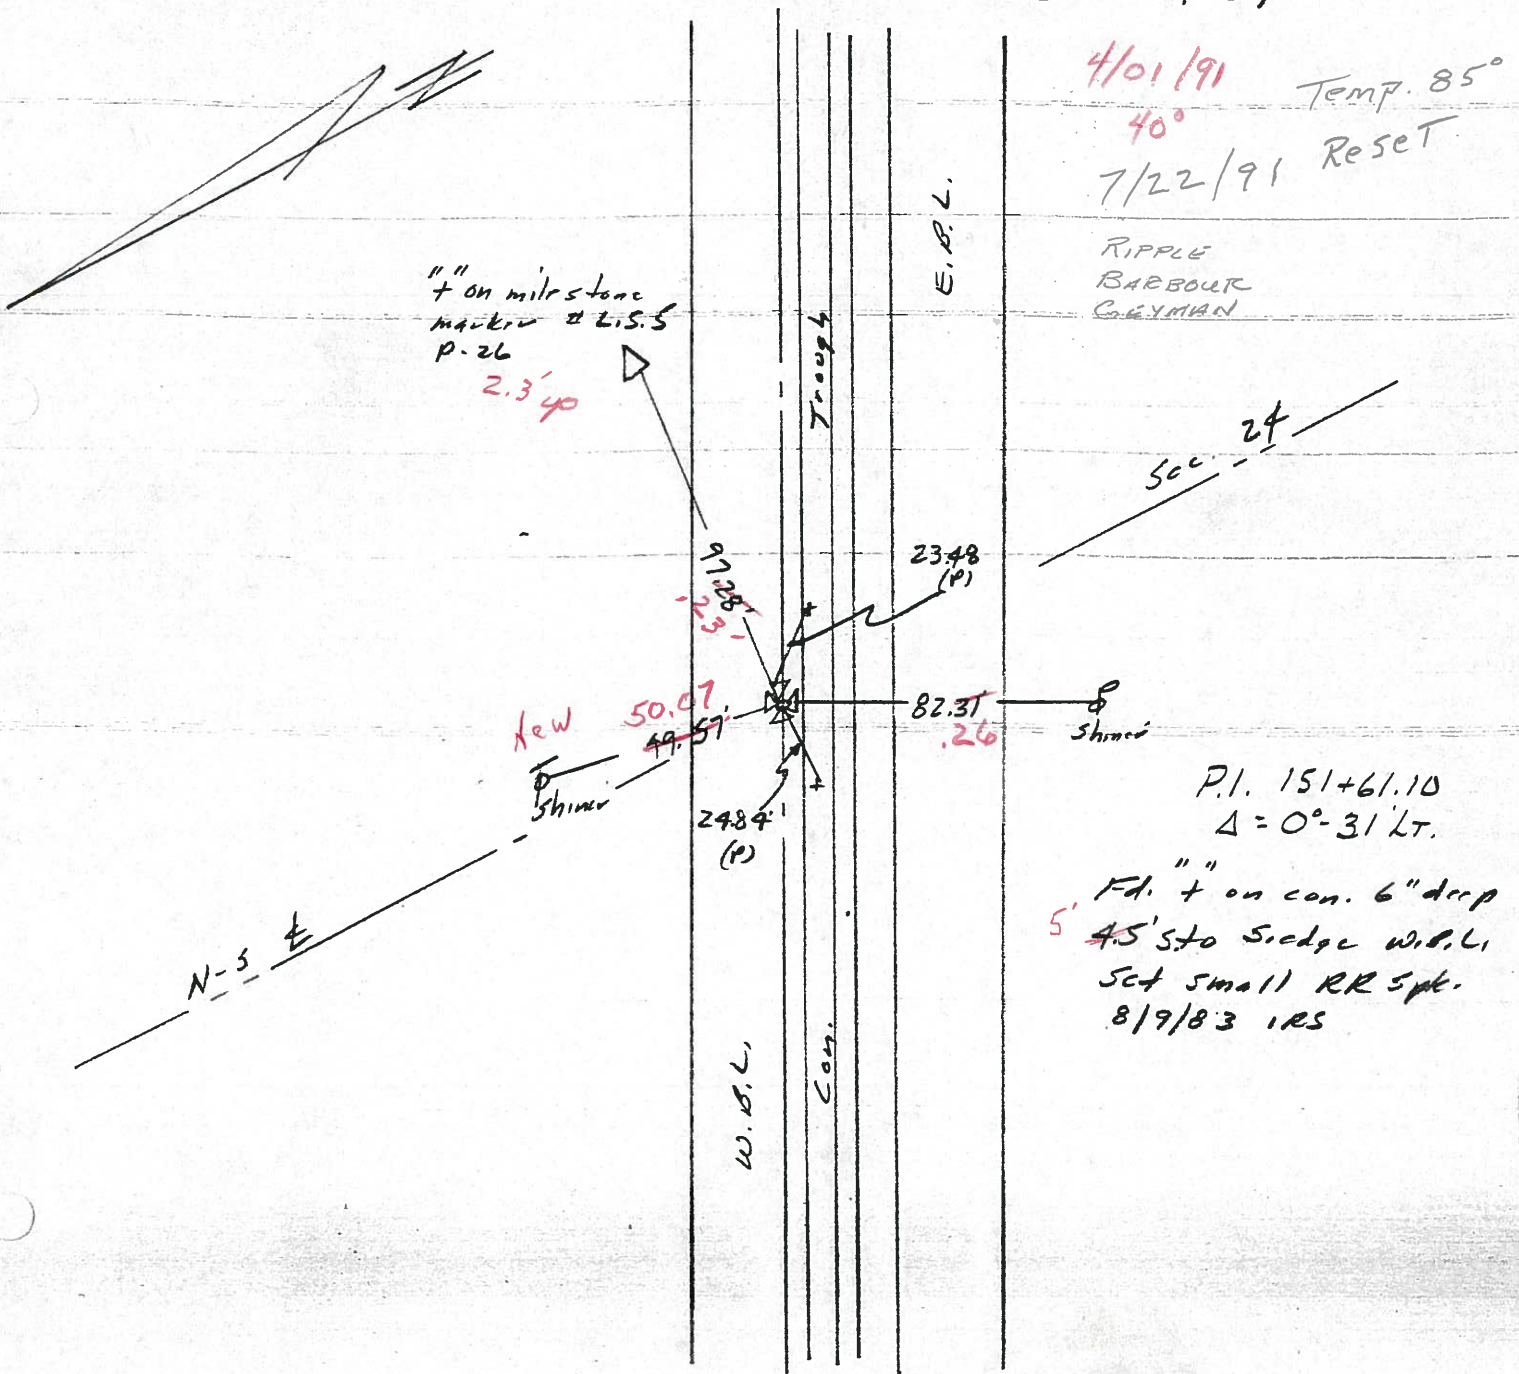 4/01/91
40°
Temp. 85°
7/22/91 Reset
RIPPLE
BARBOUR
GEYMAN
N
"+" on milestone
marker # L.S.S
P-26
2.3' up
Trough
E.B.L.
Sec. 24
97.28'
.23'
23.48
(P)
New 50.07
49.57'
shiner
82.31
.26
shiner
24.84'
(P)
P.I. 151+61.10
Δ = 0°-31' LT.
Fd. "+" on con. 6" deep
5' 4.5' S. to S. edge W.B.L.
Set small RR Spk.
8/9/83 IRS
N-S ℄
W.B.L.
Con.